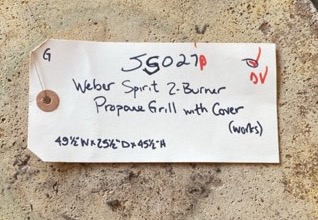 G
JS027P
DV
Weber Spirit 2-Burner
Propane Grill with Cover
(works)
49½"W x 25½"D x 45½"H